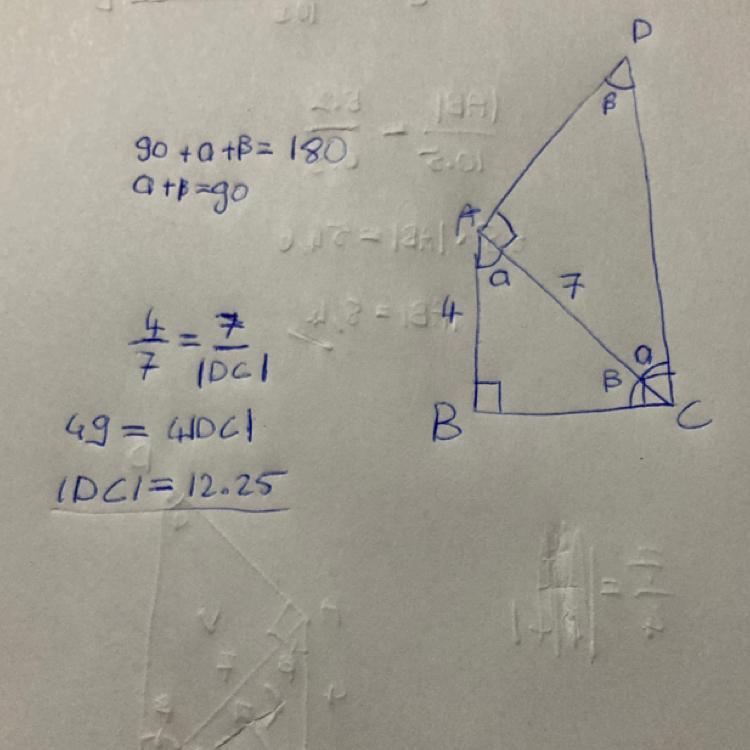 90 + a + β = 180
a + β = 90
4/7 = 7/|DC|
49 = 4|DC|
|DC| = 12.25
D
β
A
a
7
4
a
β
B
C